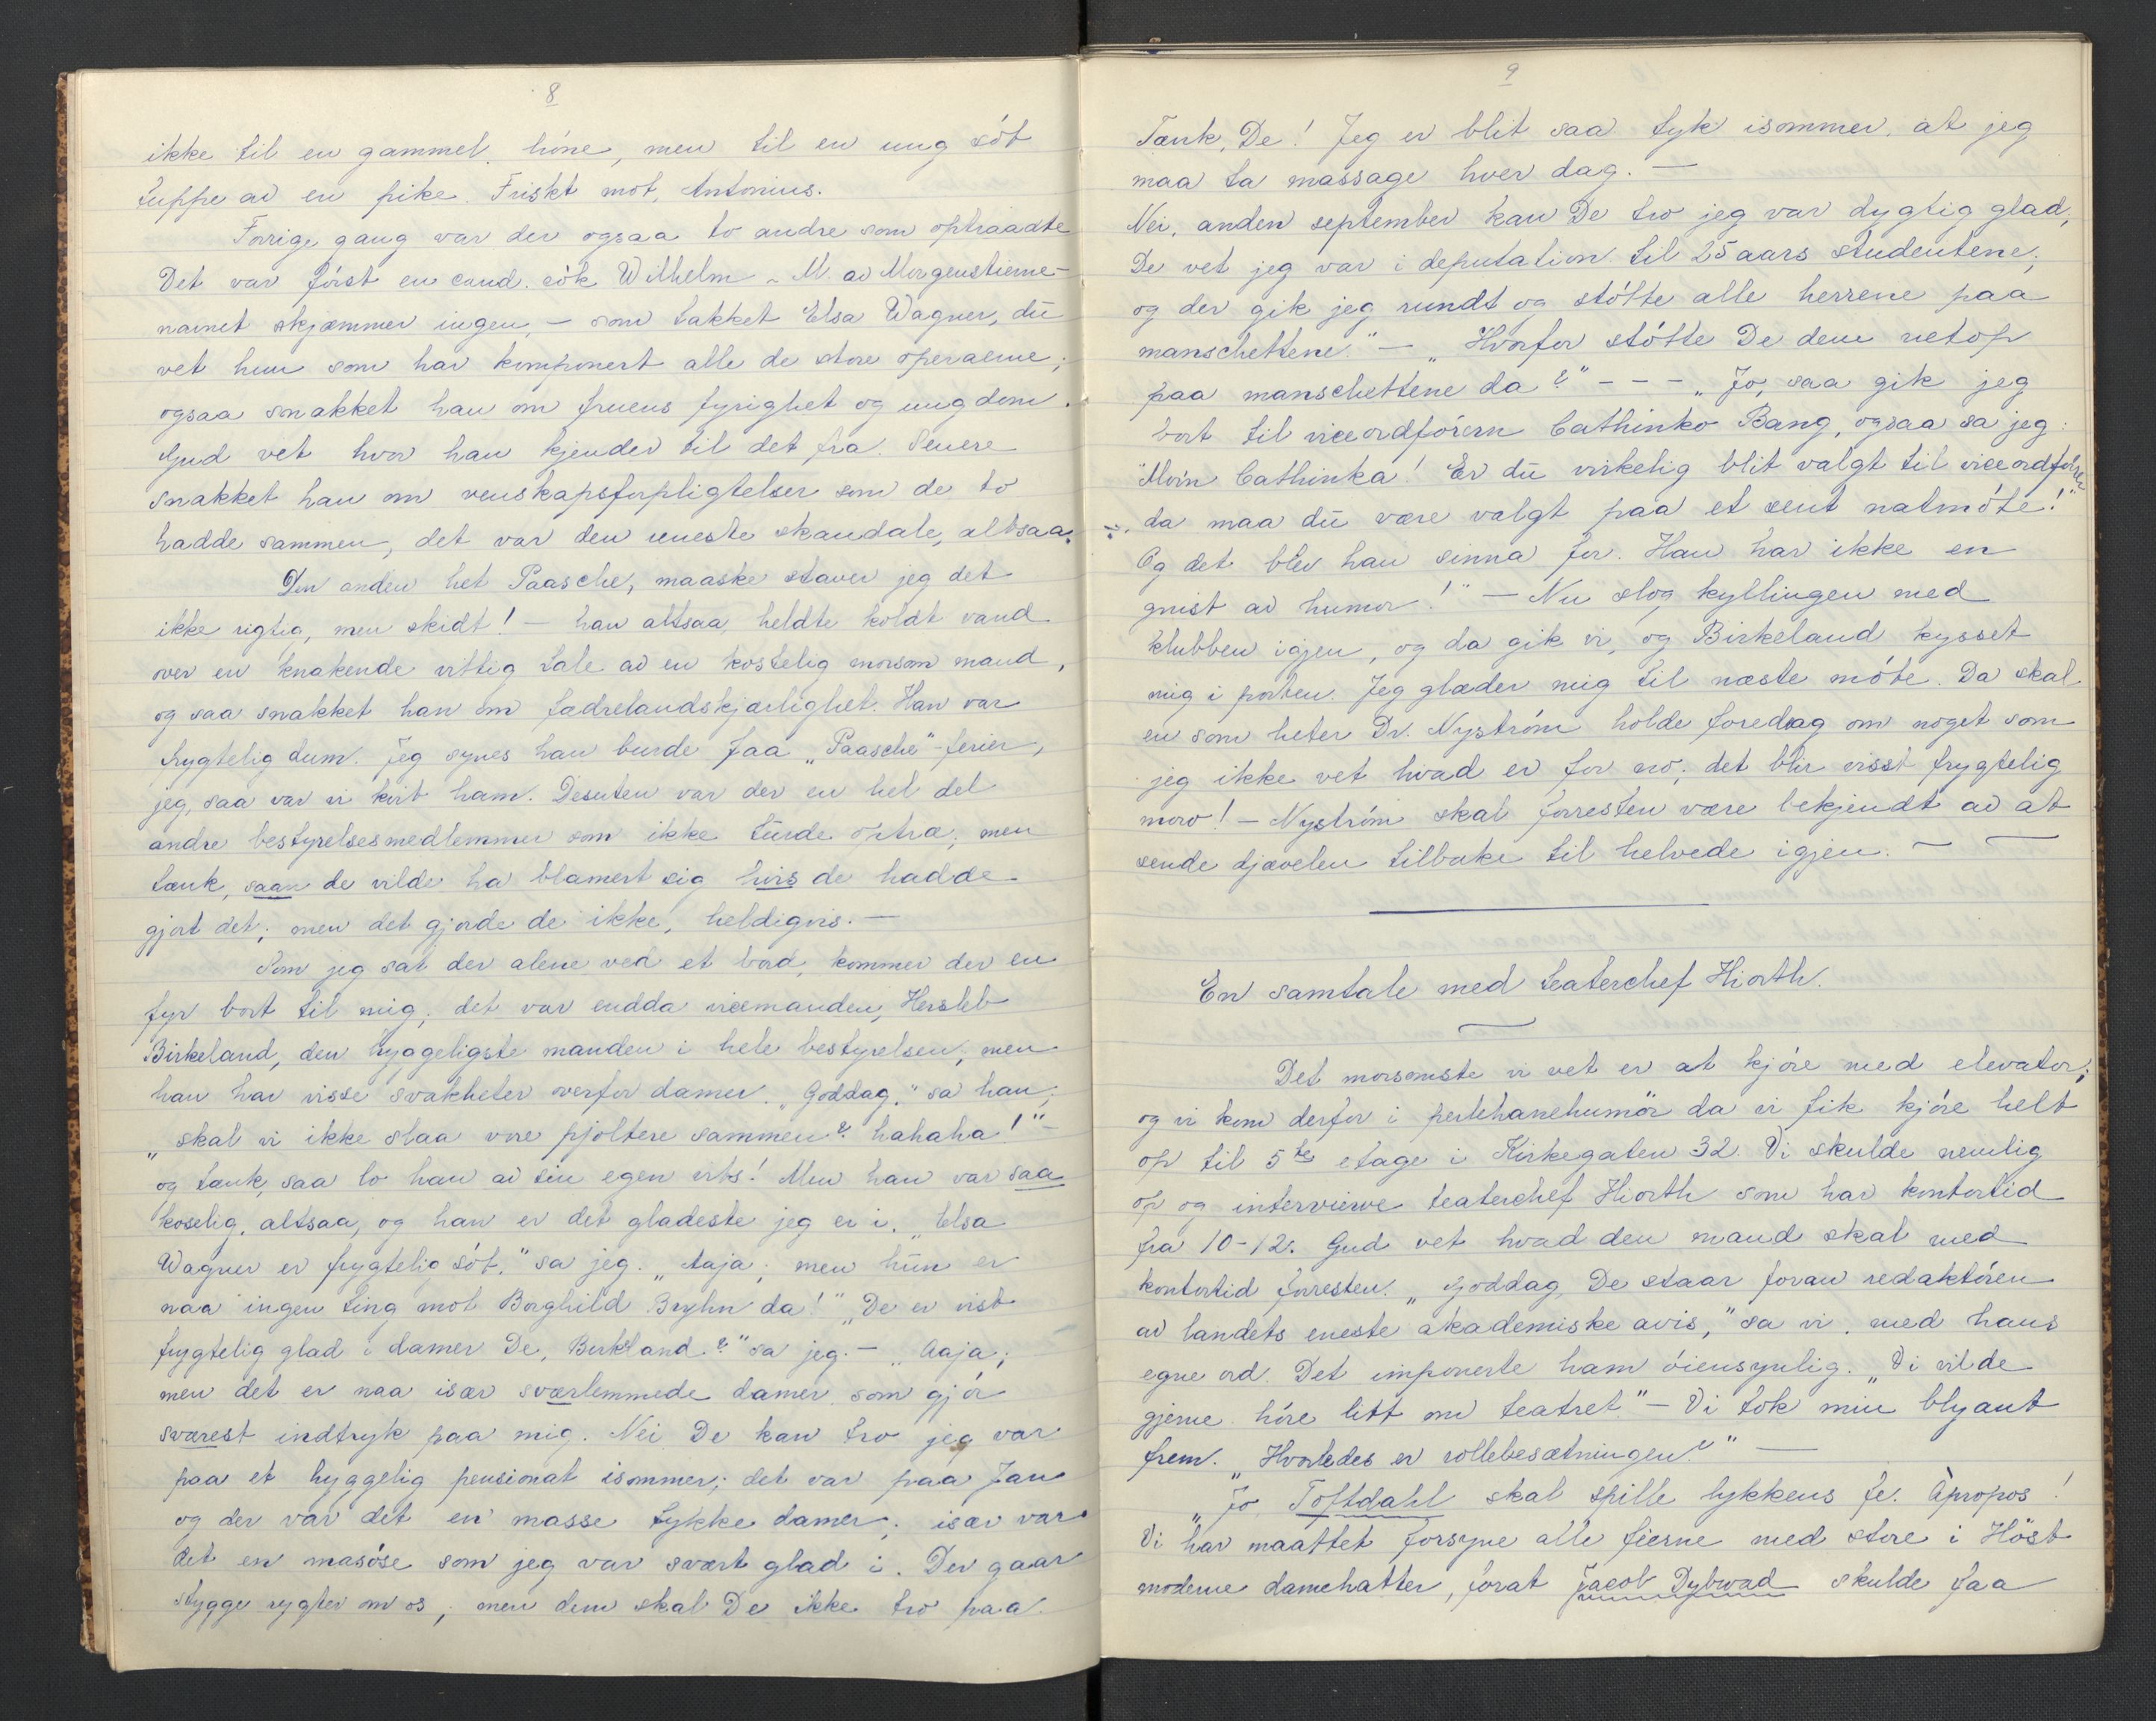 8
ikke til en gammel høne, men til en ung søt
tuppe av en pike. Friskt mot, Antonius.
Forrige gang var der ogsaa to andre som optraadte
Det var først en cand. øk Wilhelm - M av Morgenstierne -
navnet skjæmmer ingen, - som takket Elsa Wagner, du
vet hun som har komponert alle de store operaerne;
ogsaa snakket han om fruens fyrighet og ungdom.
Gud vet hvor han kjender til det fra. Senere
snakket han om venskapsforpligtelser som de to
hadde sammen, det var den reneste skandale, altsaa.
Den anden het Paasche, maaske staver jeg det
ikke rigtig, men skidt! - han altsaa, heldte koldt vand
over en knakende vittig tale av en kostelig morsom mand,
og saa snakket han om fædrelandskjærlighet. Han var
frygtelig dum. Jeg synes han burde faa „Paasche"-ferier,
jeg, saa var vi kvit ham. Desuten var der en hel del
andre bestyrelsesmedlemmer som ikke turde optræ; men
tænk, saan de vilde ha blamert sig hvis de hadde
gjort det; men det gjorde de ikke, heldigvis. -
Som jeg sat der alene ved et bord, kommer der en
fyr bort til mig; det var endda vicemanden, Hersleb
Birkeland, den hyggeligste manden i hele bestyrelsen; men
han har visse svakheter overfor damer. „Goddag," sa han;
„skal vi ikke slaa vore pjoltere sammen? hahaha!" -
og tænk, saa lo han av sin egen vits! Men han var saa
koselig, altsaa, og han er det gladeste jeg er i. „Elsa
Wagner er frygtelig søt," sa jeg. „Aaja; men hun er
naa ingen ting mot Borghild Bryhn da!" „De er vist
frygtelig glad i damer De, Birkland?" sa jeg. - „Aaja;
men det er naa især sværlemmede damer som gjør
sværest indtryk paa mig. Nei De kan tro jeg var
paa et hyggelig pensionat isommer; det var paa Jan
og der var det en masse tykke damer; især var
det en masøse som jeg var svært glad i. Der gaar
stygge rygter om os; men dem skal De ikke tro paa.
9
Tænk, De! Jeg er blit saa tyk isommer, at jeg
maa ta massage hver dag. -
Nei, anden september kan De tro jeg var dygtig glad,
De vet jeg var i deputation til 25 aars studentene;
og der gik jeg rundt og støtte alle herrene paa
manschettene." - „Hvorfor støtte De dem netop
paa manschettene da?" - - - „Jo, saa gik jeg
bort til viceordførern Cathinko Bang, ogsaa sa jeg:
"Morn Cathinka! Er du virkelig blit valgt til viceordfører
da maa du være valgt paa et sent natmøte!"
Og det blev han sinna for. Han har ikke en
gnist av humor!" - Nu slog kyllingen med
klubben igjen, og da gik vi, og Birkeland kysset
mig i porten. Jeg glæder mig til næste møte. Da skal
en som heter Dr. Nystrøm holde foredrag om noget som
jeg ikke vet hvad er for no; det blir visst frygtelig
moro! - Nystrøm skal forresten være bekjendt av at
sende djævelen tilbake til helvede igjen. -
En samtale med teaterchef Hiorth.
Det morsomste vi vet er at kjøre med elevator;
og vi kom derfor i perlehanehumør da vi fik kjøre helt
op til 5te etage i Kirkegaten 32. Vi skulde nemlig
op og interviewe teaterchef Hiorth som har kontortid
fra 10-12. Gud vet hvad den mand skal med
kontortid forresten. „Goddag, De staar foran redaktøren
av landets eneste akademiske avis," sa vi, med hans
egne ord. Det imponerte ham øiensynlig. „Vi vilde
gjerne høre litt om teatret." - Vi tok min blyant
frem. „Hvorledes er rollebesætningen?" -
„Jo Toftdahl skal spille lykkens fe. Apropos!
Vi har maattet forsyne alle feerne med store i Høst
moderne damehatter, forat Jacob Dybwad skulde faa